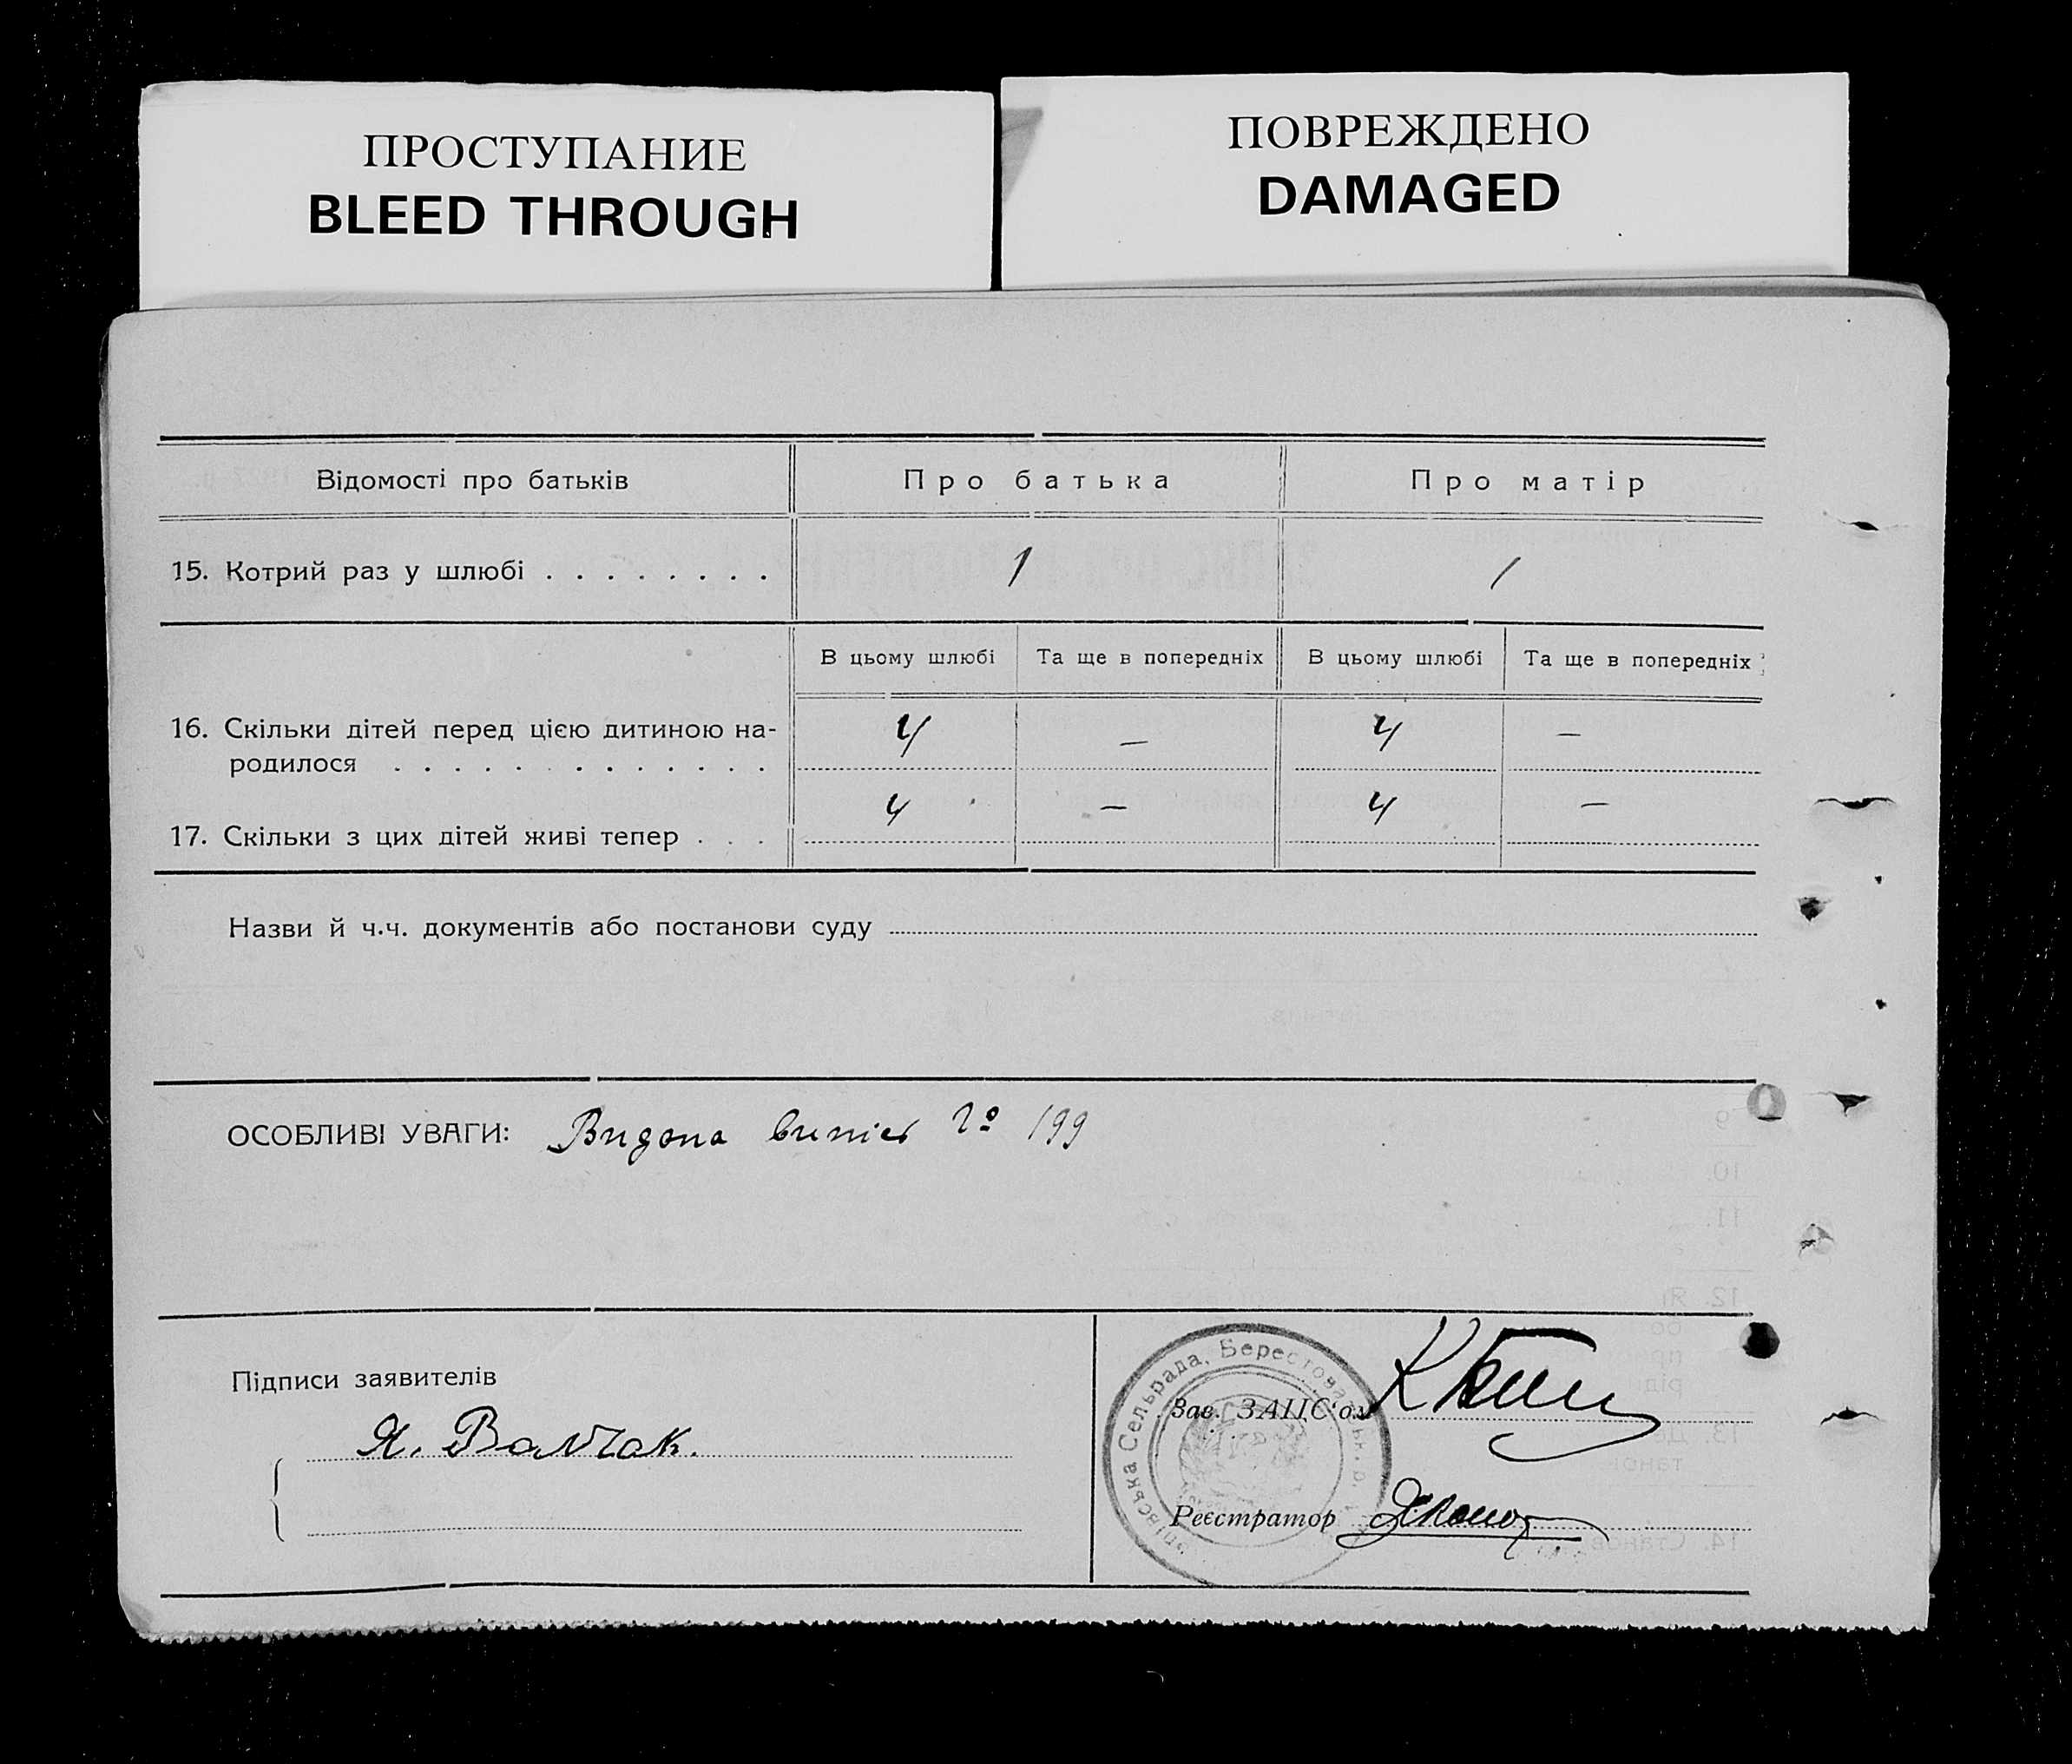 ПРОСТУПАНИЕ
BLEED THROUGH
ПОВРЕЖДЕНО
DAMAGED
Відомості про батьків
Про батька
Про матір
15. Котрий раз у шлюбі . . . . . . . .
1
1
В цьому шлюбі
Та ще в попередніх
В цьому шлюбі
Та ще в попередніх
16. Скільки дітей перед цією дитиною на-
родилося . . . . . . . . . . . . .
4
—
4
—
17. Скільки з цих дітей живі тепер . . .
4
—
4
—
Назви й ч.ч. документів або постанови суду
ОСОБЛИВІ УВАГИ: Видана випис № 199
Підписи заявителів
Зав. ЗАЦС'ом
Реєстратор
Сельрада, Берестова